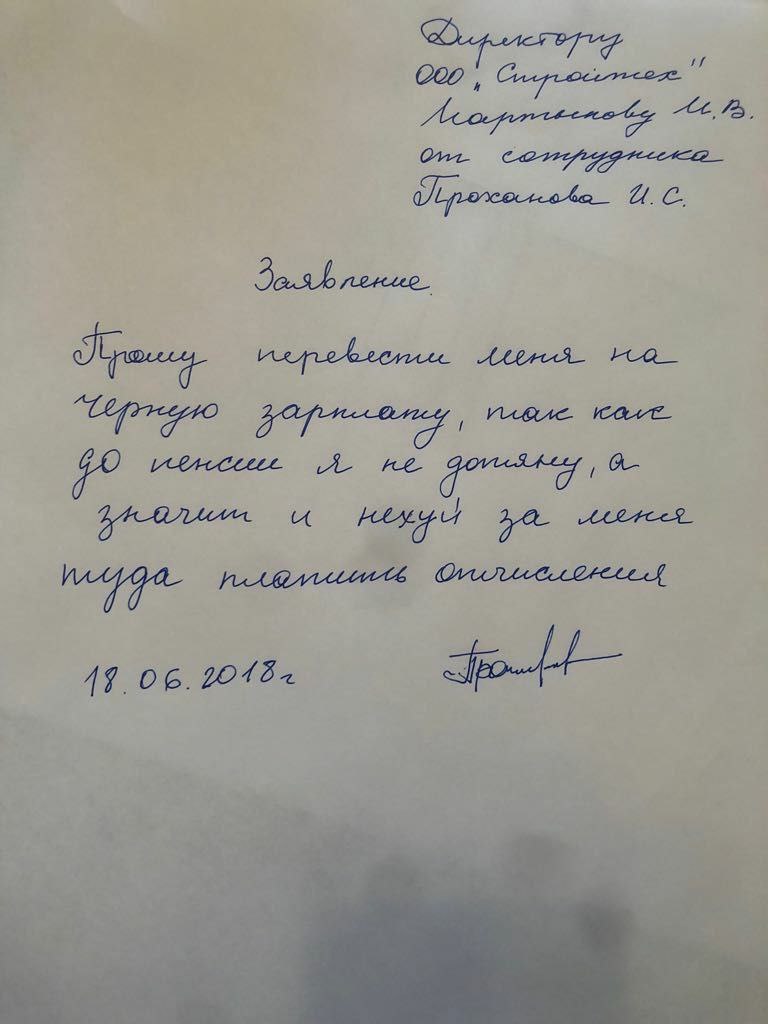 Директору
ООО "Стройтех"
Мартынову М.В.
от сотрудника
Проханова И.С.
Заявление.
Прошу перевести меня на
черную зарплату, так как
до пенсии я не дотяну, а
значит и нехуй за меня
туда платить отчисления
18.06.2018г